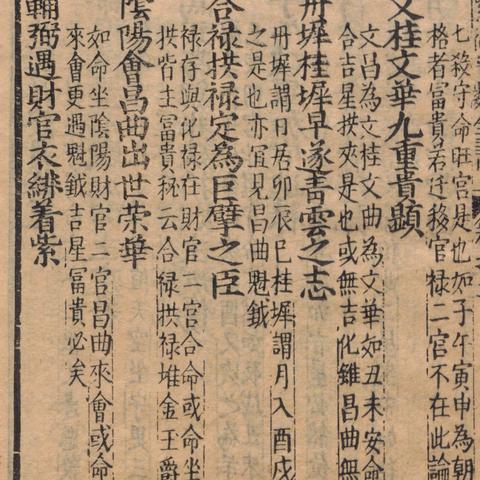 七殺守命旺宮是也如子午寅申為朝
格者富貴若迁移官禄二宮不在此論
文桂文華九重貴顯
文昌為文桂文曲為文華如丑未安命
合吉星拱夾是也或無吉化雖昌曲無
丹墀桂墀早遂青雲之志
丹墀謂日居卯辰巳桂墀謂月入酉戌
之是也亦宜見昌曲魁鉞
合禄拱禄定為巨擘之臣
禄存與化禄在財官二宮合命或命坐
拱皆主富貴秘云合禄拱禄堆金玉爵
陰陽會昌曲出世荣華
如命坐陰陽財官二宮昌曲來會或命
來會更遇魁鉞吉星冨貴必矣
輔弼遇財官衣緋着紫